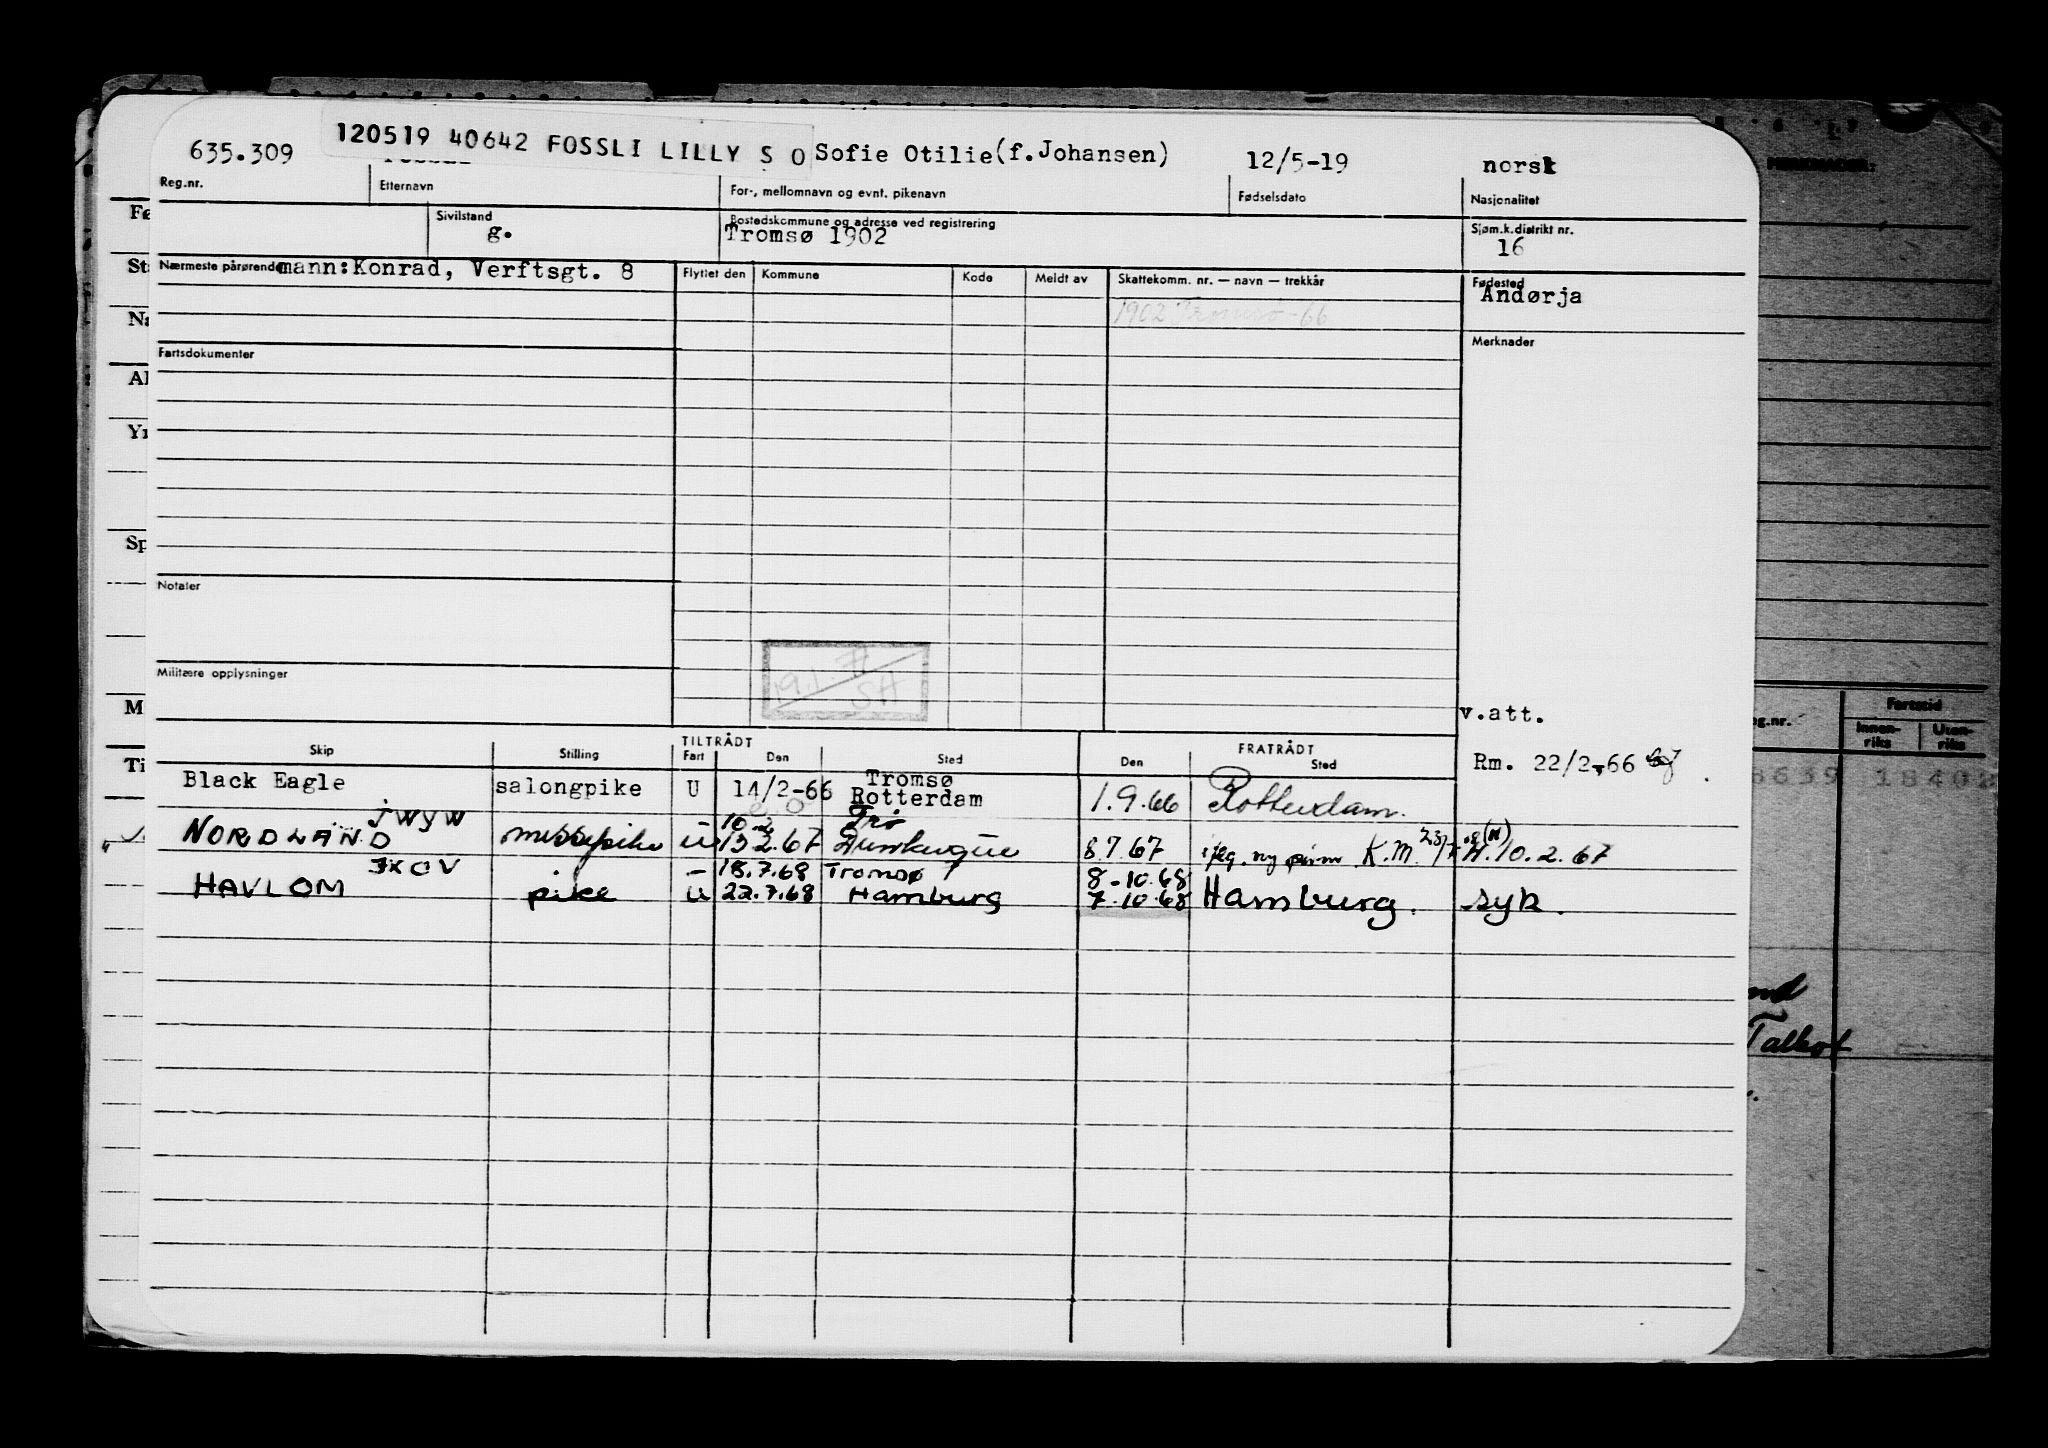 635.309 120519 40642 FOSSLI LILLY S O Sofie Otilie(f.Johansen) 12/5-19 norsk
Reg.nr. Etternavn For-, mellomnavn og evnt. pikenavn Fødselsdato Nasjonalitet
Sivilstand Bostedskommune og adresse ved registrering Sjøm.k.distrikt nr.
g. Tromsø 1902 16
Nærmeste pårørende mann:Konrad, Verftsgt. 8 Flyttet den Kommune Kode Meldt av Skattekomm. nr. — navn — trekkår Fødested
Andørja
1902 Tromsø-66
Fartsdokumenter Merknader
Notater
Militære opplysninger
v.att.
TILTRÅDT FRATRÅDT
Skip Stilling Fart Den Sted Den Sted
Rm. 22/2-66
Black Eagle salongpike U 14/2-66 Tromsø
Rotterdam 1.9.66 Rotterdam.
JWYW 10.2
NORDLAND messepike u 13 2.67 Dunkerque 8.7.67 K.M. 10.2.67
JXOV - 18.7.68 Tromsø 8-10.68
HAVLOM pike u 22.7.68 Hamburg 7.10.68 Hamburg. syk.
Fø
St
Na
Al
Yr
Sp
M
Ti
MERKNADER:
Fartstid
eg.nr. Innen-
riks Uten-
riks
8639 18402
Talbot